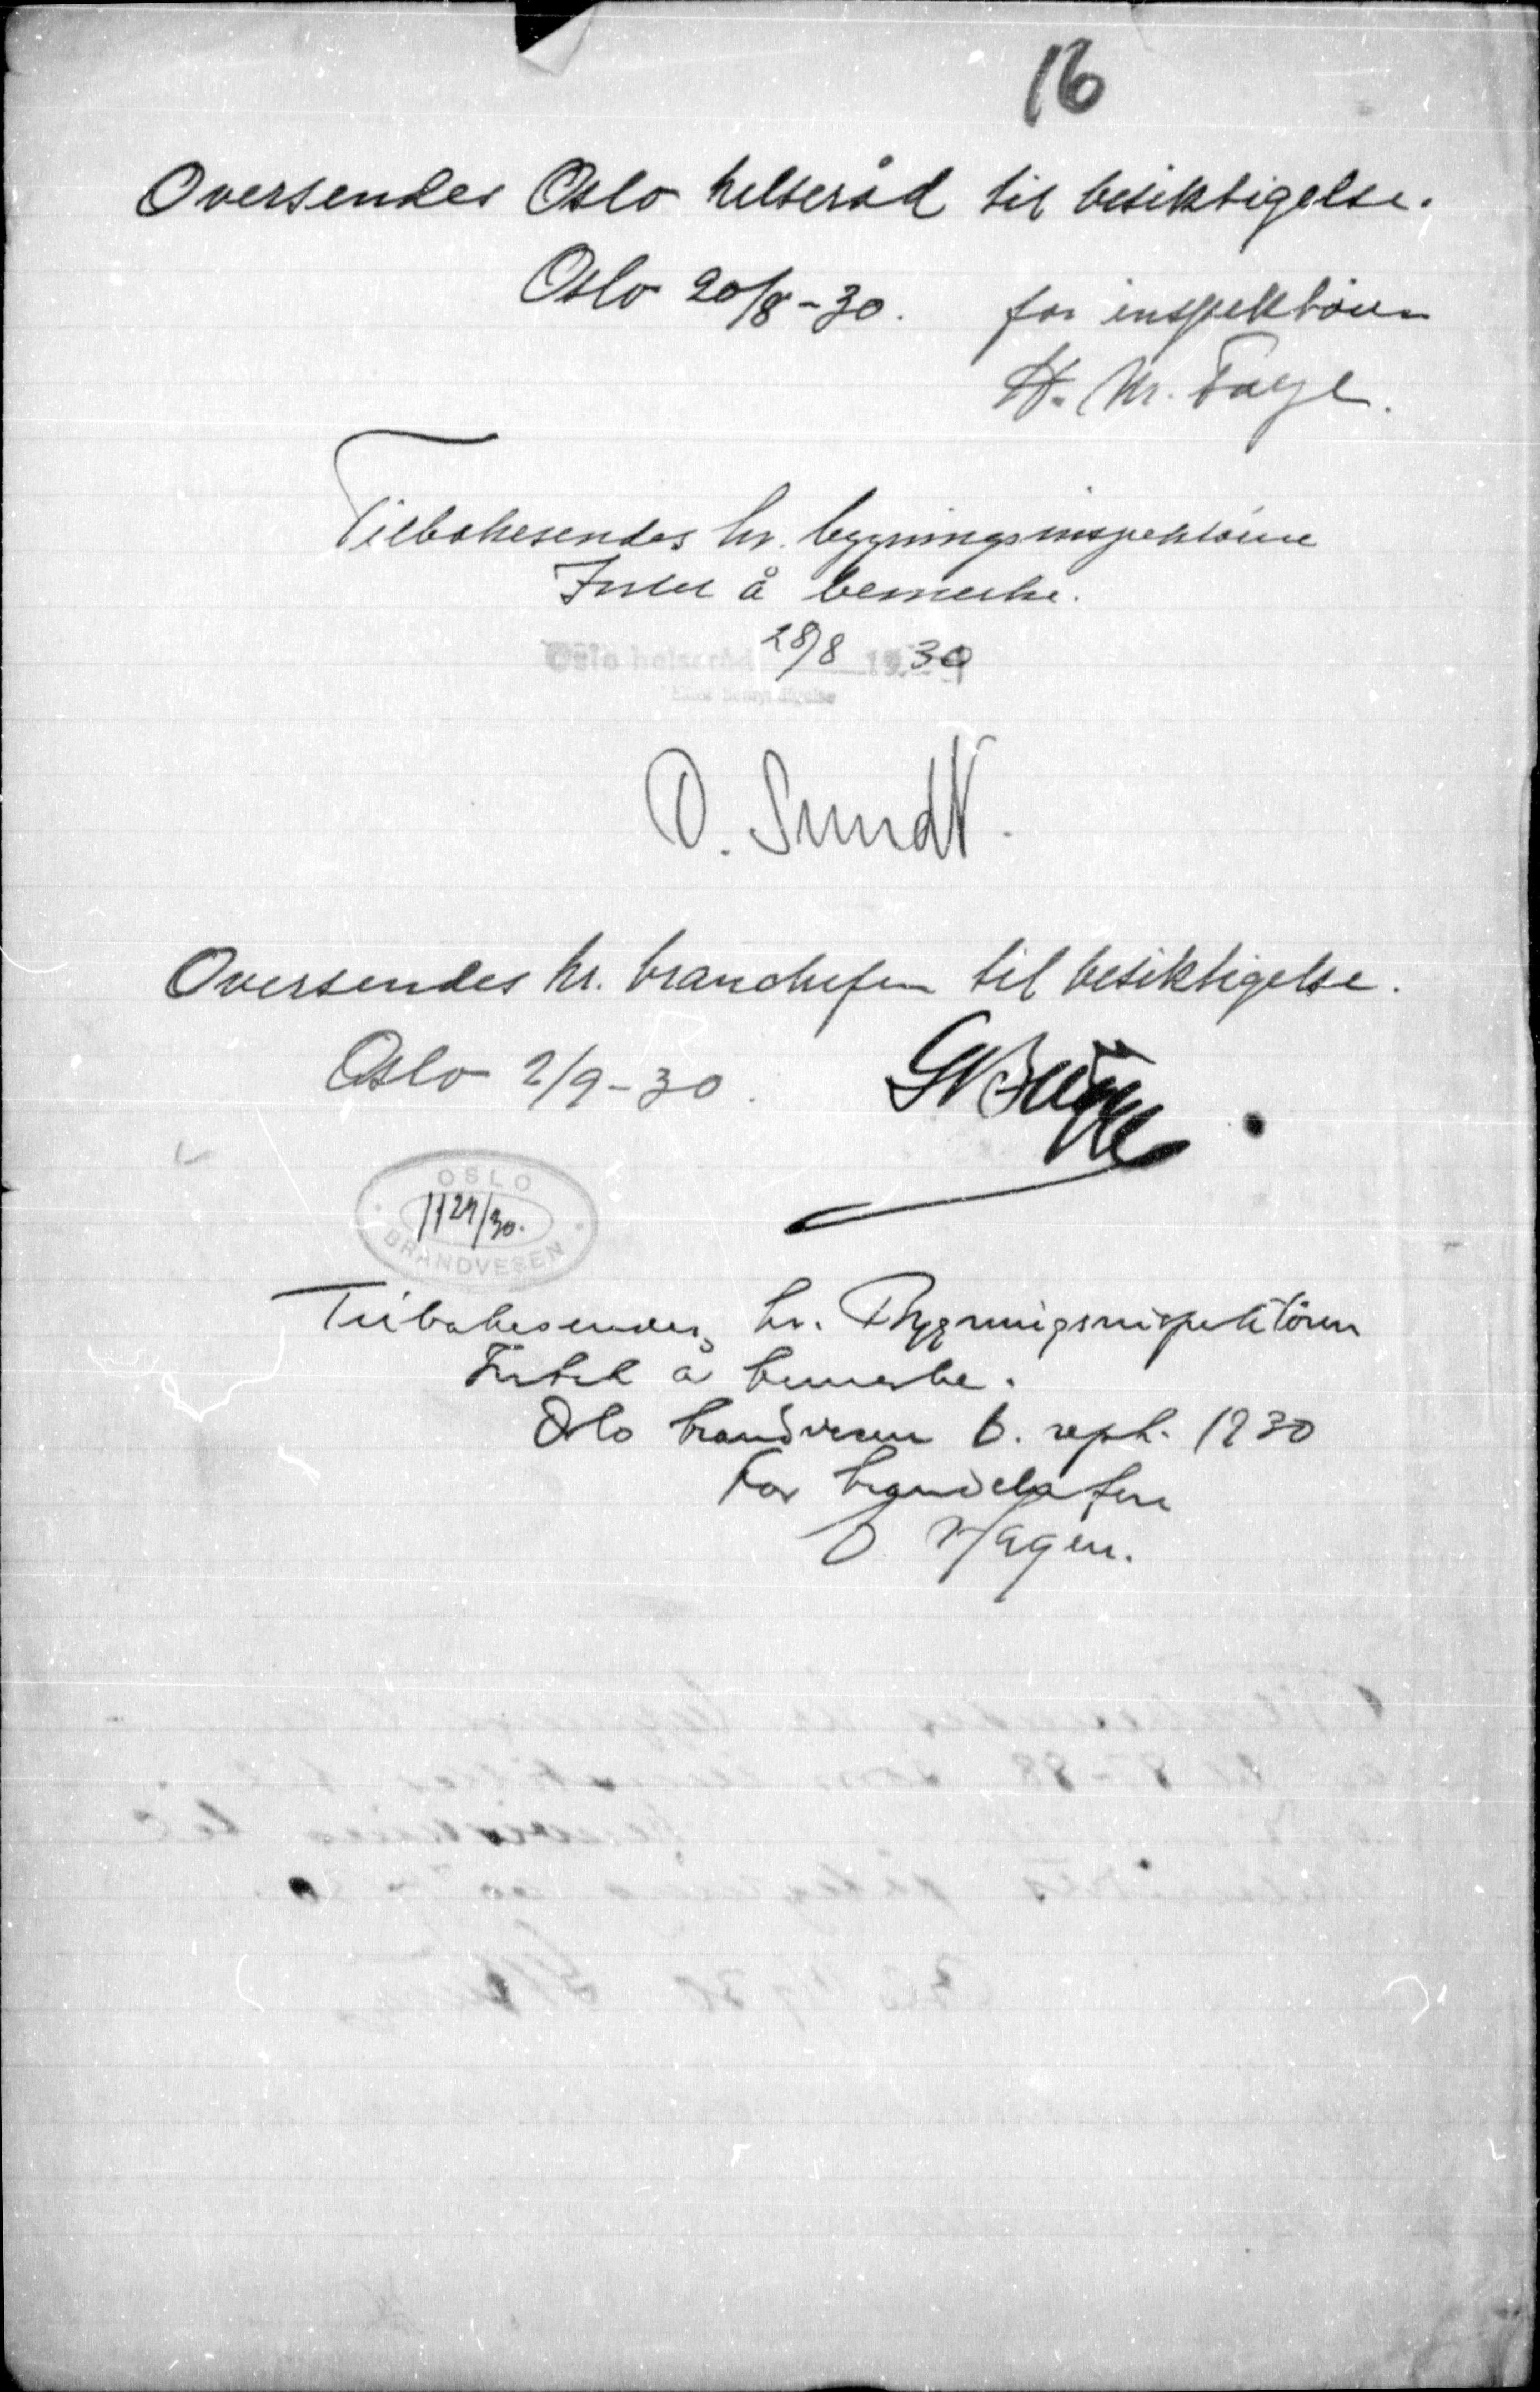 16
Oversendes Oslo helseråd til besiktigelse.
Oslo 20/8-30. for inspektøren
H. Mr. Faye.
Tilbakesendes hr. bygningsinspektøren
Intet å bemerke.
Oslo helseråd 28/8 1930
Efter bemyndigelse
O. Sundt.
Oversendes hr. brandchefen til besiktigelse.
Oslo 2/9-30.
OSLO
1129/30.
BRANDVESEN
Tilbakesendes hr. Bygningsinspektøren
Intet å bemerke.
Oslo brandvesen 6. sept. 1930
For brandchefen
O Hagen.